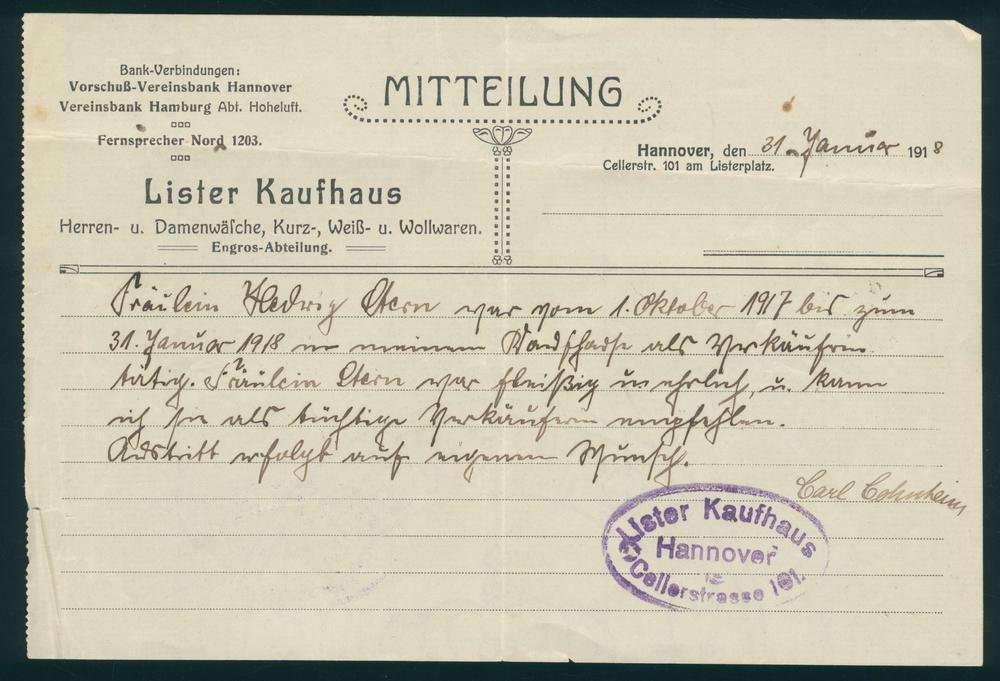 Bank-Verbindungen:
Vorschuß-Vereinsbank Hannover
Vereinsbank Hamburg Abt. Hoheluft.
Fernsprecher Nord 1203.
Lister Kaufhaus
Herren- u. Damenwäſche, Kurz-, Weiß- u. Wollwaren.
Engros-Abteilung.
MITTEILUNG
Hannover, den 31. Januar 1918
Cellerstr. 101 am Listerplatz.
Fräulein Hedwig Stern war vom 1. Oktober 1917 bis zum
31. Januar 1918 in meinem Kaufhause als Verkäuferin
tätig. Fräulein Stern war fleißig u. ehrlich, u. kann
ich sie als tüchtige Verkäuferin empfehlen.
Austritt erfolgt auf eigenen Wunsch.
Carl Cohnheim
Lister Kaufhaus
Hannover
Cellerstrasse 101.